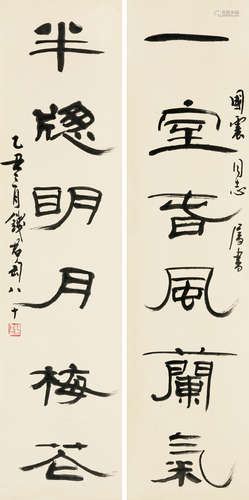 一室旾風蘭氣
國震同志 屬書
半牕明月梅花
乙丑三月錢君匋八十